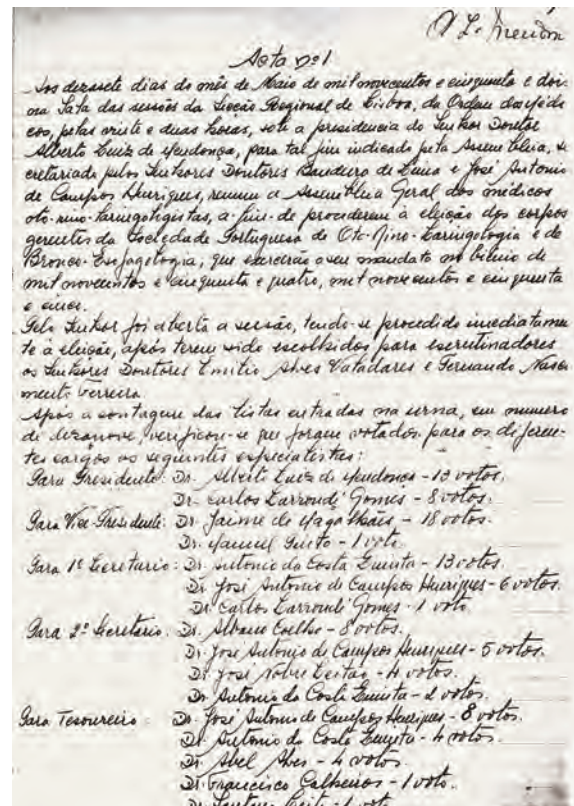 A. L. Mendon
Acta nº1
Aos dezasete dias do mês de Maio de mil novecentos e cincquenta e dois
na Sala das sessões da Secção Regional de Lisboa, da Ordem dos Médi
cos, pelas vinte e duas horas, sob a presidencia do Senhor Doutor
Alberto Luiz de Mendonça, para tal fim indicado pela Assembleia, se
cretariado pelos Senhores Doutores Bandeira de Lima e José Antonio
de Campos Henriques, reuniu a Assembleia Geral dos médicos
oto-rino-laringologistas, a fim de procederem à eleição dos corpos
gerentes da Sociedade Portuguesa de Oto-Rino-Laringologia e de
Bronco-Esofagologia, que exercerão o seu mandato no biénio de
mil novecentos e cincquenta e quatro, mil novecentos e cincquenta
e cinco.
Pelo Senhor foi aberta a sessão, tendo-se procedido imediatamen
te à eleição, após terem sido escolhidos para escrutinadores
os Senhores Doutores Emilio Alves Valadares e Fernando Nasci
mento Ferreira.
Após a contagem das listas entradas na urna, em numero
de dezanove, verificou-se que foram votados para os diferen
tes cargos os seguintes especialistas:
Para Presidente: Dr. Alberto Luiz de Mendonça - 13 votos.
Dr. Carlos Larroudé Gomes - 8 votos.
Para Vice-Presidente: Dr. Jaime de Magalhães - 18 votos.
Dr. Manuel - 1 voto.
Para 1º Secretario: Dr. Antonio da Costa Quinta - 13 votos.
Dr. José Antonio de Campos Henriques - 6 votos.
Dr. Carlos Larroudé Gomes - 1 voto.
Para 2º Secretario: Dr. Albano Coelho - 8 votos.
Dr. José Antonio de Campos Henriques - 5 votos.
Dr. José Nobre Leitão - 4 votos.
Dr. Antonio da Costa Quinta - 2 votos.
Para Tesoureiro: Dr. José Antonio de Campos Henriques - 8 votos.
Dr. Antonio da Costa Quinta - 4 votos.
Dr. Abel Alves - 4 votos.
Dr. Francisco Calheiros - 1 voto.
Dr. - 1 voto